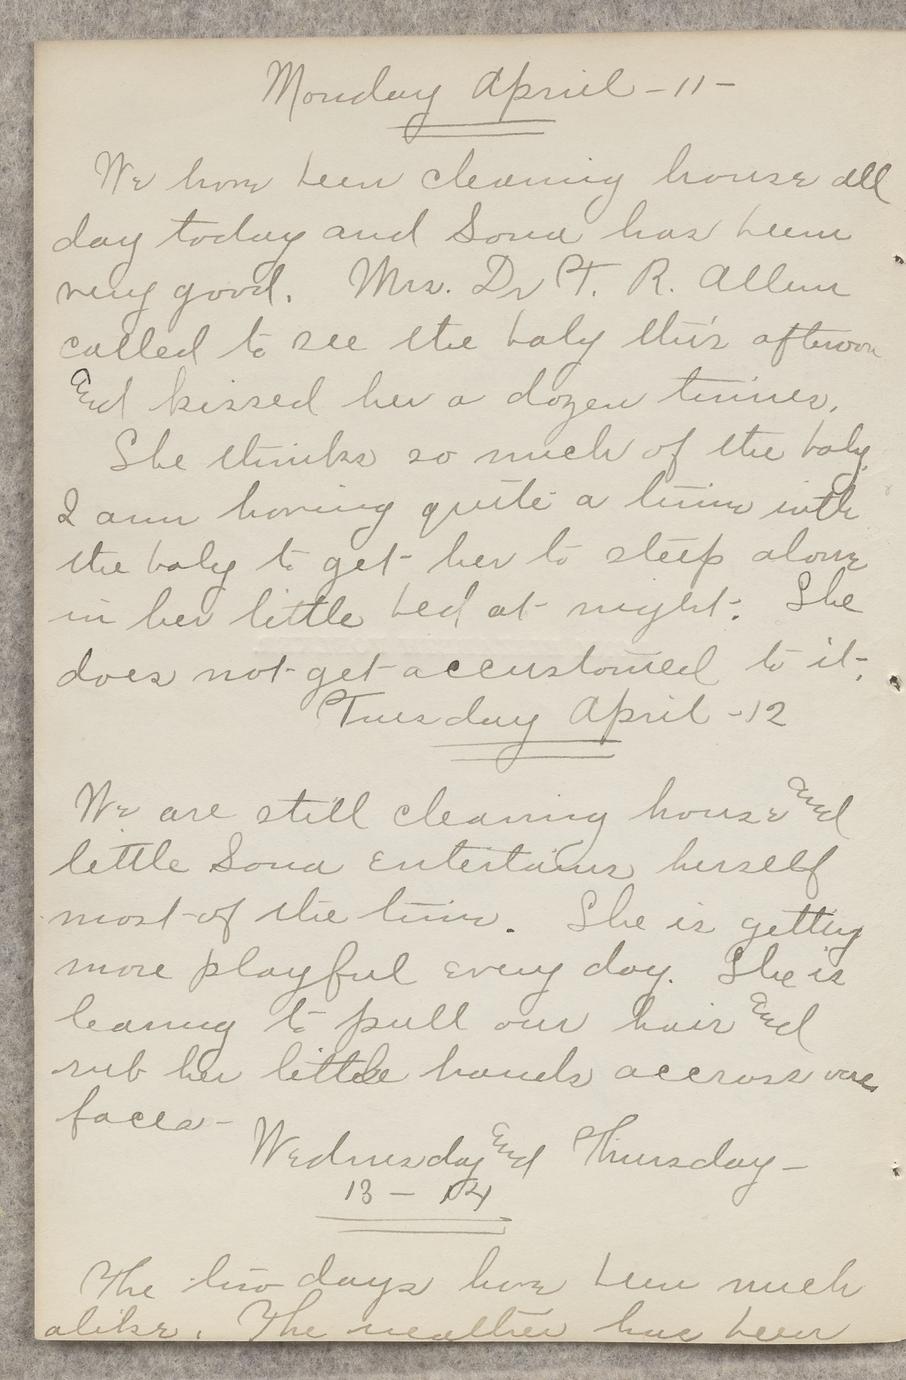 Monday April - 11 -
We have been cleaning house all
day today and Sona has been
very good. Mrs. Dr T. R. Allen
called to see the baby this afternoon
and kissed her a dozen times.
She thinks so much of the baby.
I am having quite a time with
the baby to get her to sleep alone
in her little bed at night. She
does not get accustomed to it.
Tuesday April - 12
We are still cleaning house and
little Sona entertains herself
most of the time. She is getting
more playful every day. She is
learing to pull our hair and
rub her little hands accross our
faces -
Wednesday and Thursday -
13 - 14
The two days have been much
alike. The weather has been